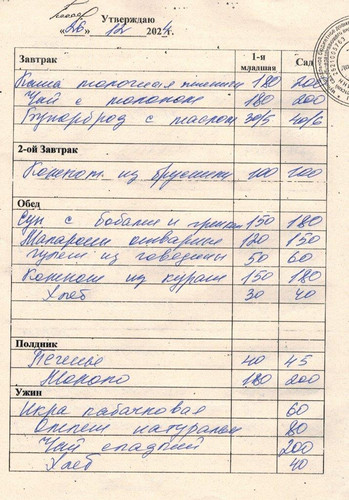 Утверждаю
«26» 12 2024г.
Завтрак 1-я младшая Сад
Каша молочная пшенич 180 200
Чай с молоком 180 200
Бутерброд с маслом 30/5 40/6
2-ой Завтрак
Компот из брусники 100 100
Обед
Суп с бобами и гренками 150 180
Макароны отварные 120 150
гуляш из говядины 50 60
Компот из кураги 150 180
Хлеб 30 40
Полдник
Печенье 40 45
Молоко 180 200
Ужин
Икра кабачковая 60
Омлет натуральн 80
Чай сладкий 200
Хлеб 40